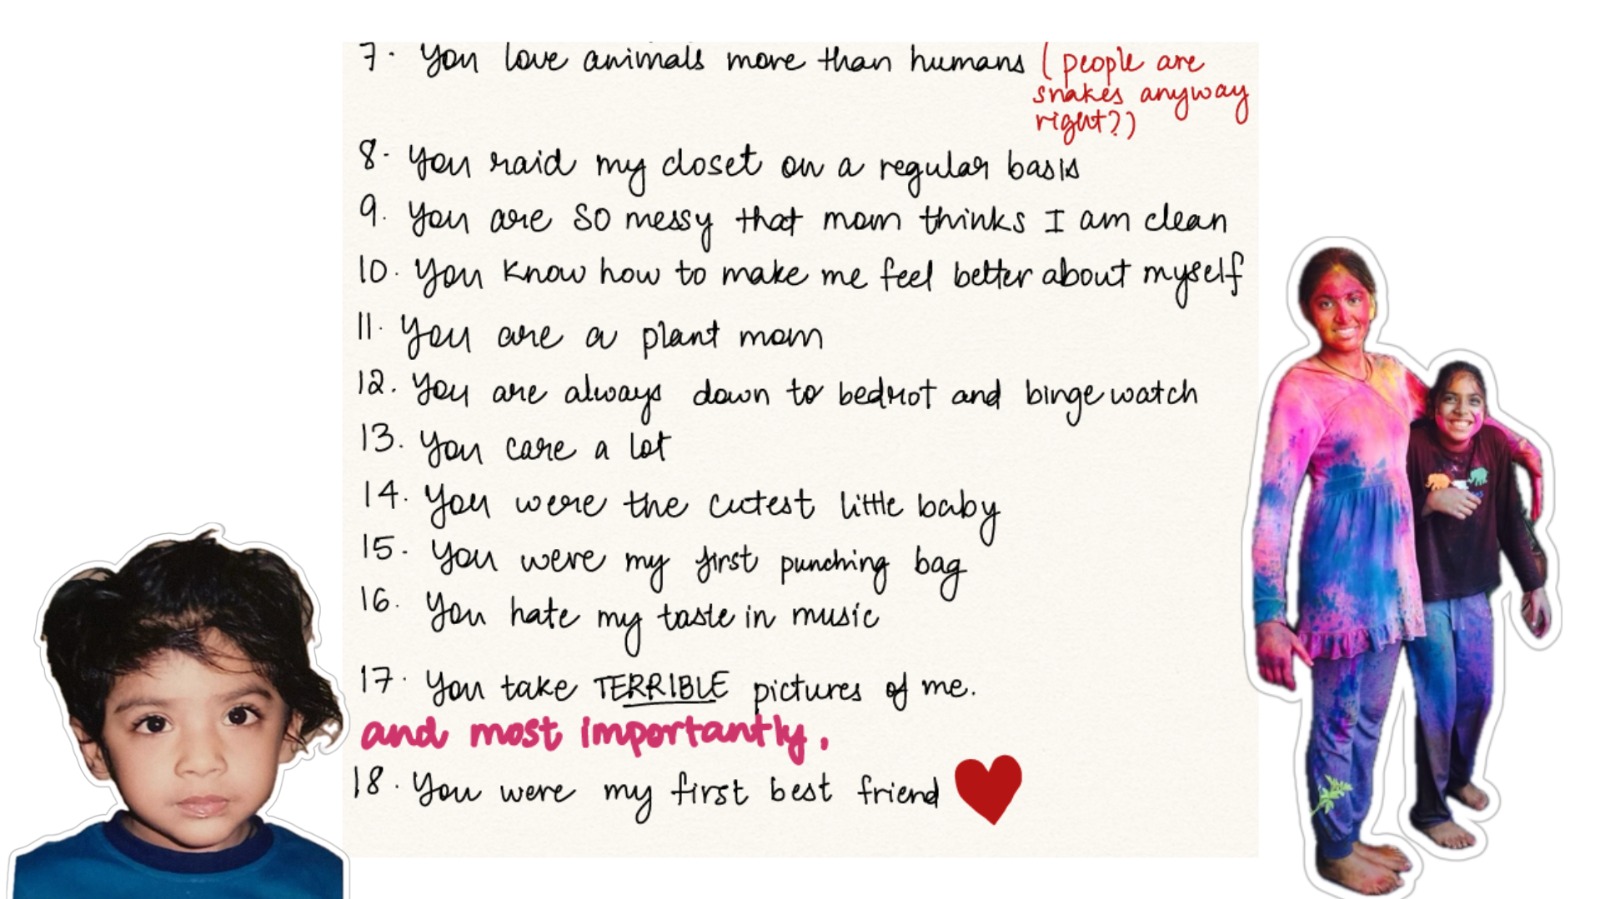 7. You love animals more than humans (people are
snakes anyway
right?)
8. You raid my closet on a regular basis
9. You are SO messy that mom thinks I am clean
10. You know how to make me feel better about myself
11. You are a plant mom
12. You are always down to bedrot and binge watch
13. You care a lot
14. You were the cutest little baby
15. You were my first punching bag
16. You hate my taste in music
17. You take TERRIBLE pictures of me.
and most importantly,
18. You were my first best friend